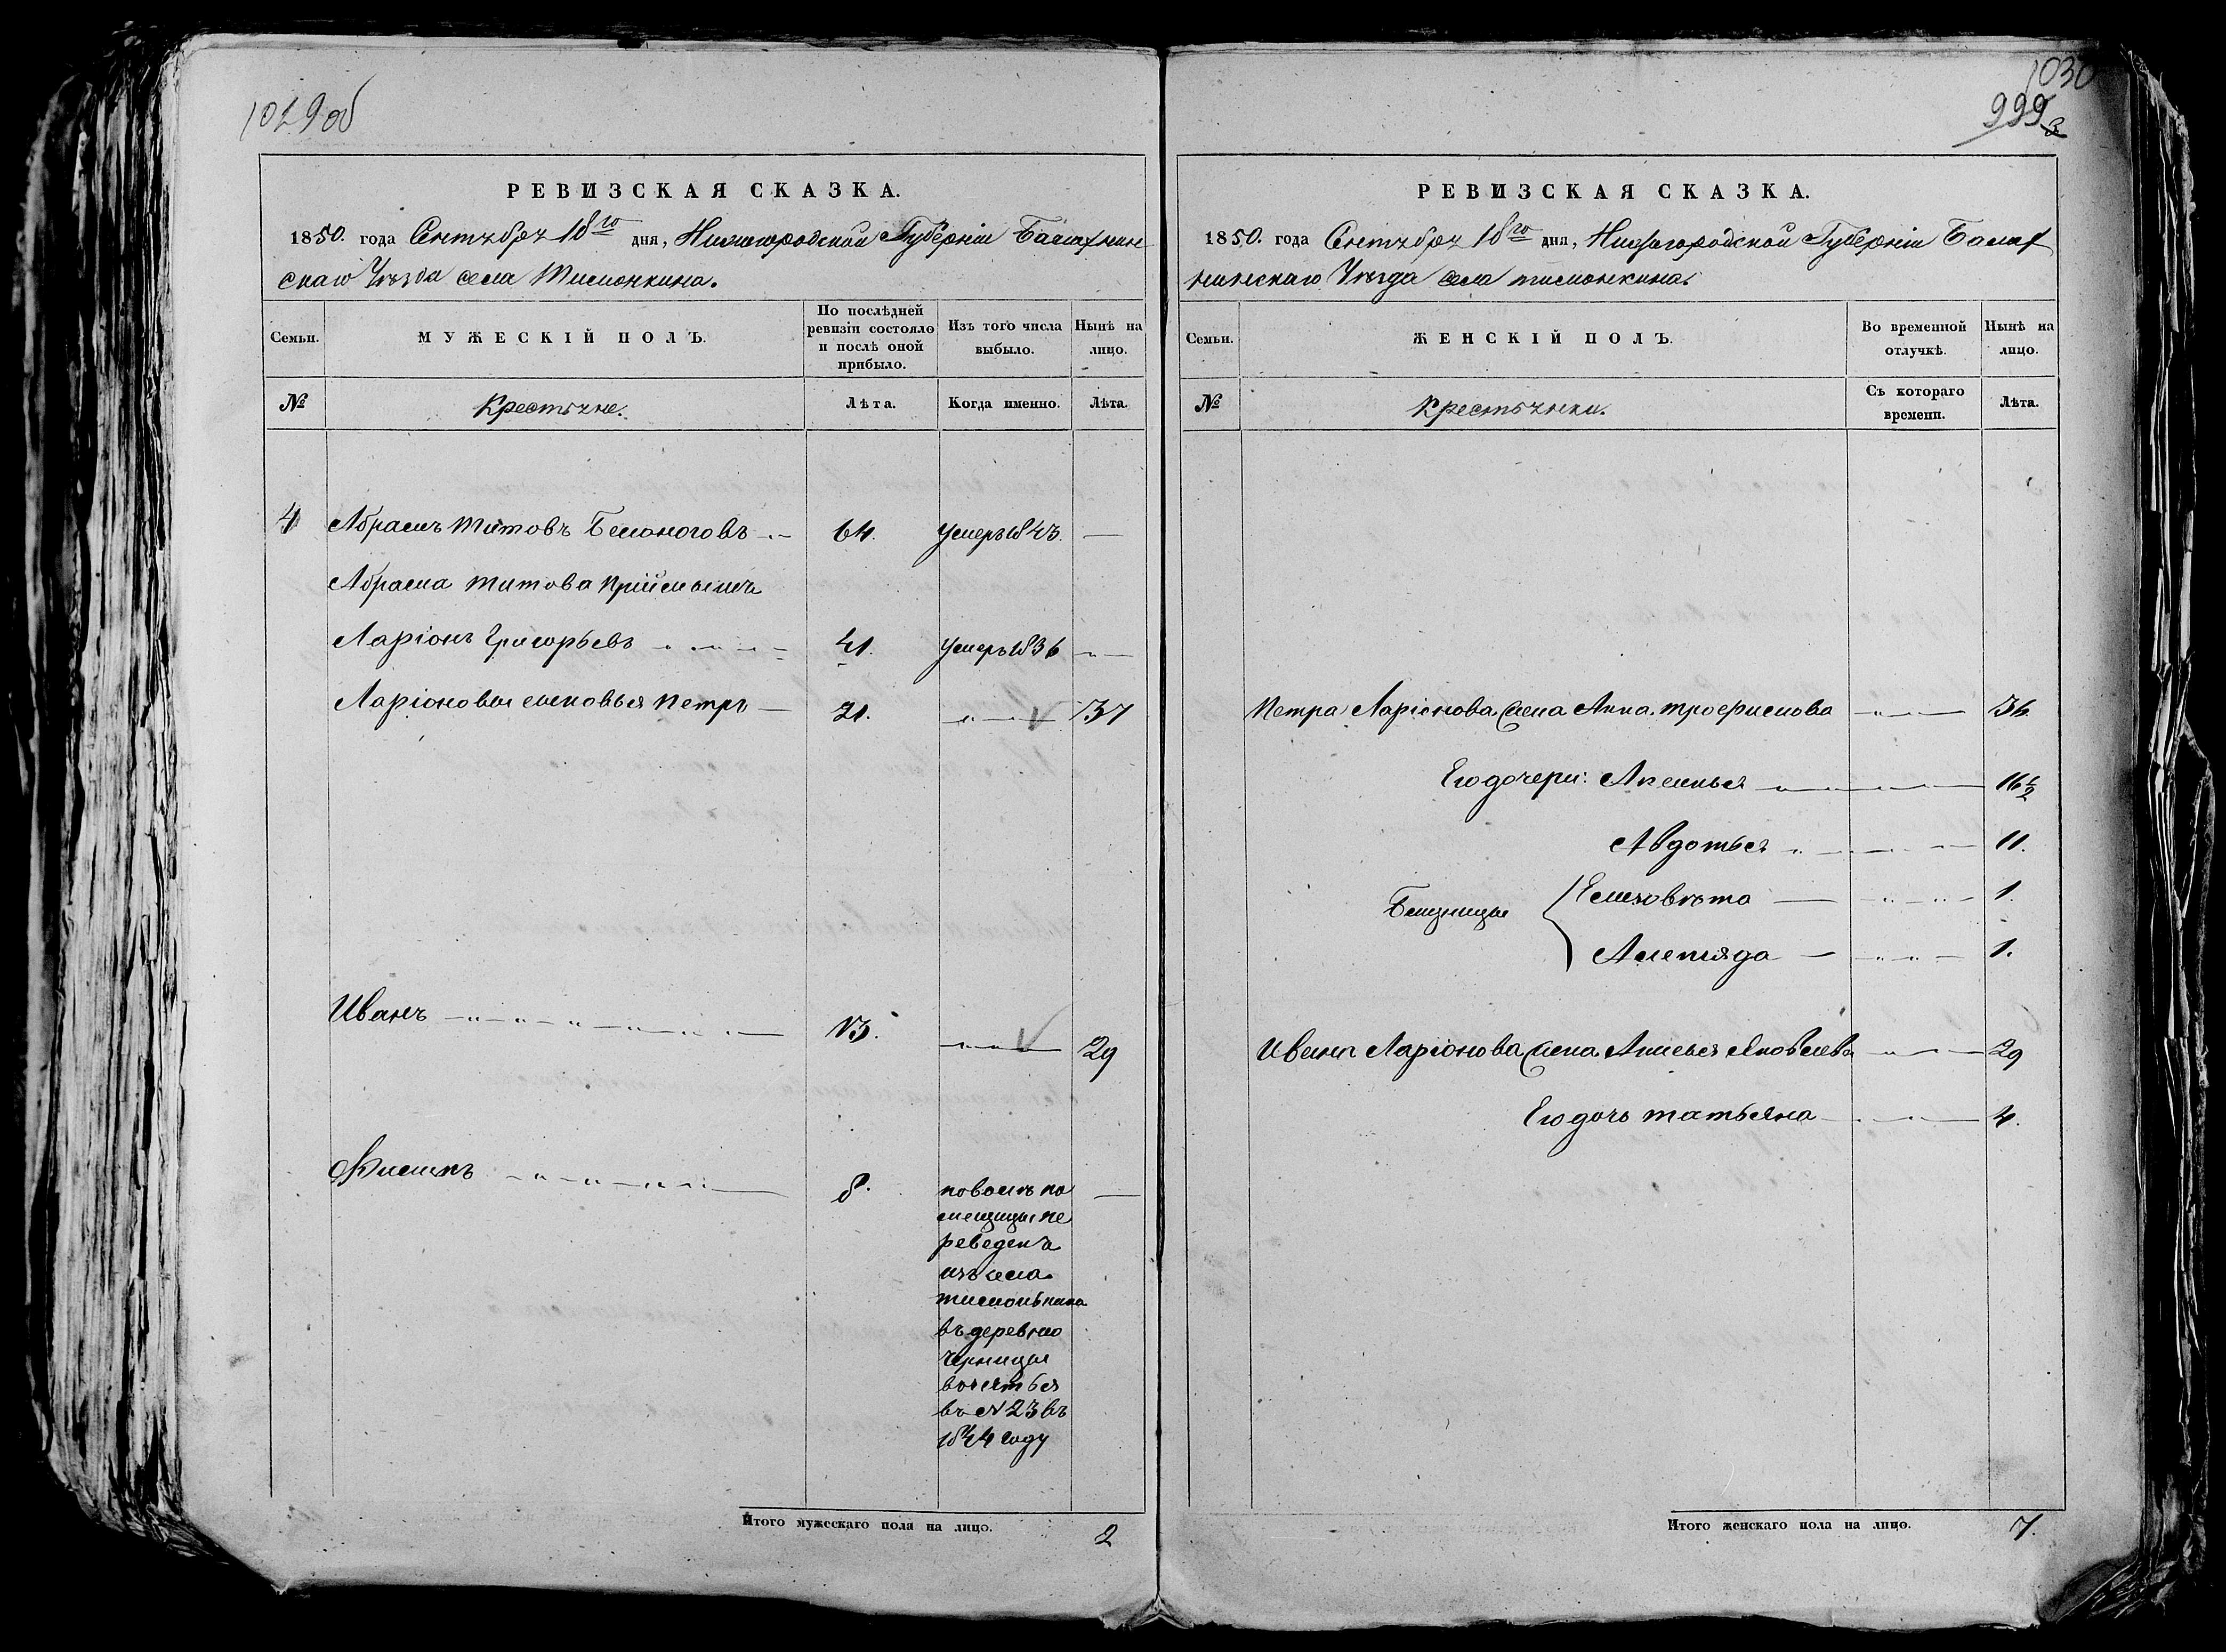 1029об
РЕВИЗСКАЯ СКАЗКА.
1850. года Сентября 18го дня, Нижегородской Губерніи Балахнин
скаго Уѣзда села Тимонькина.
Семьи.
МУЖЕСКІЙ ПОЛЪ.
По послѣдней ревизіи состояло и послѣ оной прибыло.
Изъ того числа выбыло.
Нынѣ на лицо.
№
Крестьяне.
Лѣта.
Когда именно.
Лѣта.
4 Абрамъ Титовъ Белоноговъ 64. умеръ 1843. —
Абрама Титова Пріймышъ
Ларіонъ Григорьевъ 41. умеръ 1836 —
Ларіоновы сыновья Петръ — 21. V 37
Иванъ 13. V 29
Филипъ 8. по волѣ по —
мещицы пе
реведенъ
изъ села
тимонькина
въ деревню
Черницы
въ № 23 въ
1844 году
Итого мужескаго пола на лицо. 2
1030
999
РЕВИЗСКАЯ СКАЗКА.
1850. года Сентября 18го дня, Нижегородской Губерніи Балах
нинскаго Уѣзда села тимонькина.
Семьи.
ЖЕНСКІЙ ПОЛЪ.
Во временной отлучкѣ.
Нынѣ на лицо.
№
Крестьянки.
Съ котораго времени.
Лѣта.
Петра Ларіонова жена Анна трофимова 36.
Его дочери: Аксинья 16 1/2
Авдотья 11.
Близницы { Елизовѣта — 1.
Алепіяда — 1.
Ивана Ларіонова жена Яковлева 29
Его дочь татьяна 4.
Итого женскаго пола на лицо. 7.